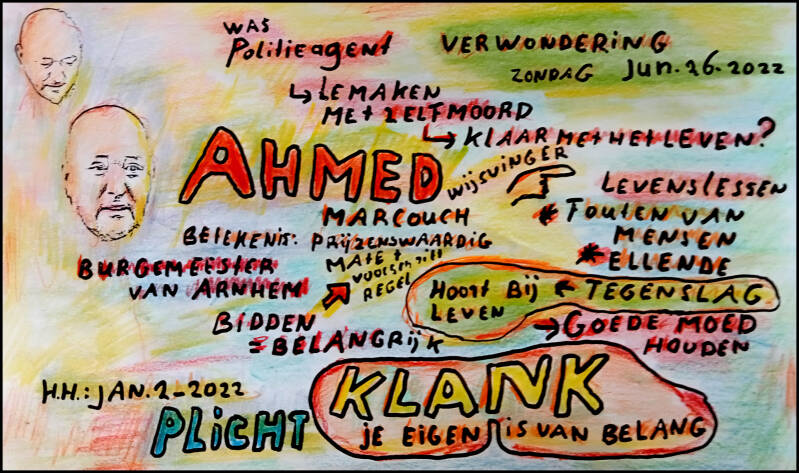 WAS
Politieagent
VERWONDERING
ZONDAG Jun. 26. 2022
↳ LEMAKEN
MET ZELFMOORD
↳ KLAAR MET HET LEVEN?
AHMED
WIJSVINGER
MARCOUCH
BETEKENIS: PRIJZENSWAARDIG
BURGEMEESTER
VAN ARNHEM
MATE +
VOORSCHRIFT
REGEL
BIDDEN
= BELANGRIJK
LEVENSLESSEN
* FOUTEN VAN
MENSEN
* ELLENDE
Hoort Bij ← TEGENSLAG
LEVEN
→ GOEDE MOED
HOUDEN
H.H.: JAN. 2-2022
PLICHT
KLANK
je EIGEN IS VAN BELANG